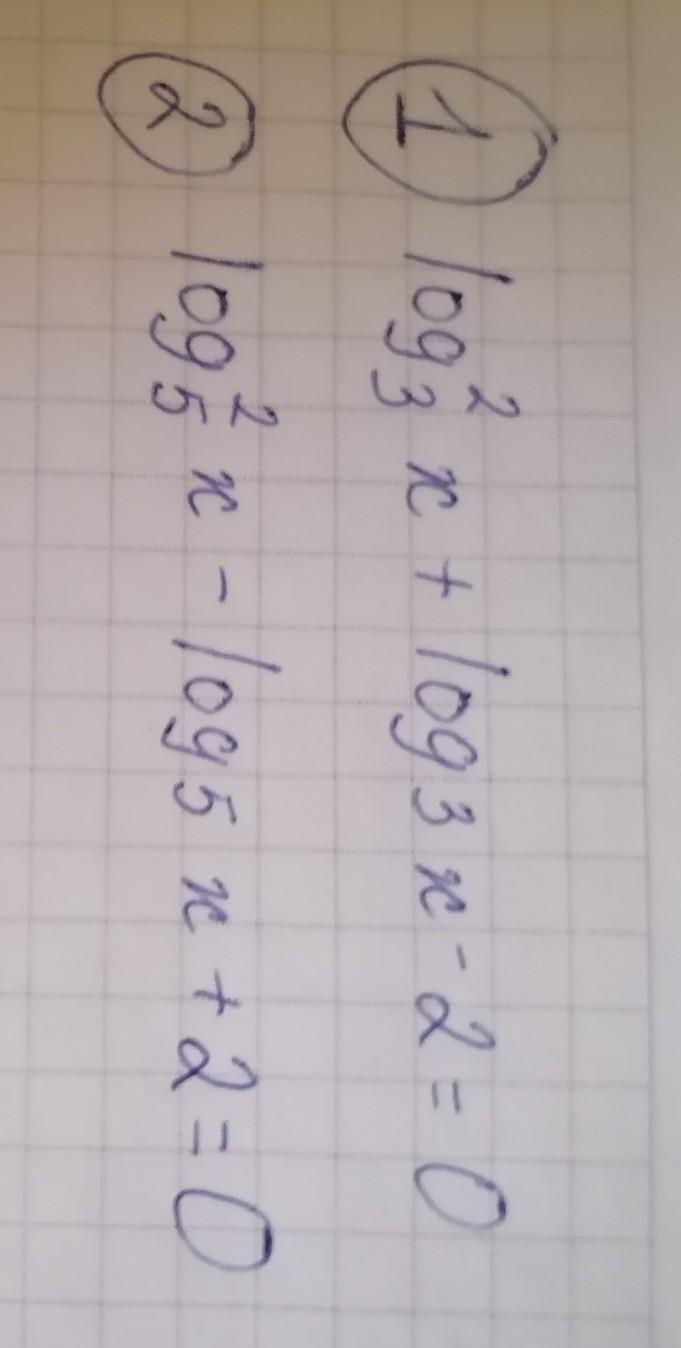 ① log₃² x + log₃ x - 2 = 0
② log₅² x - log₅ x + 2 = 0